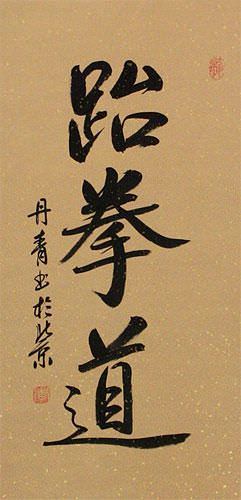 跆拳道
丹青书於北京